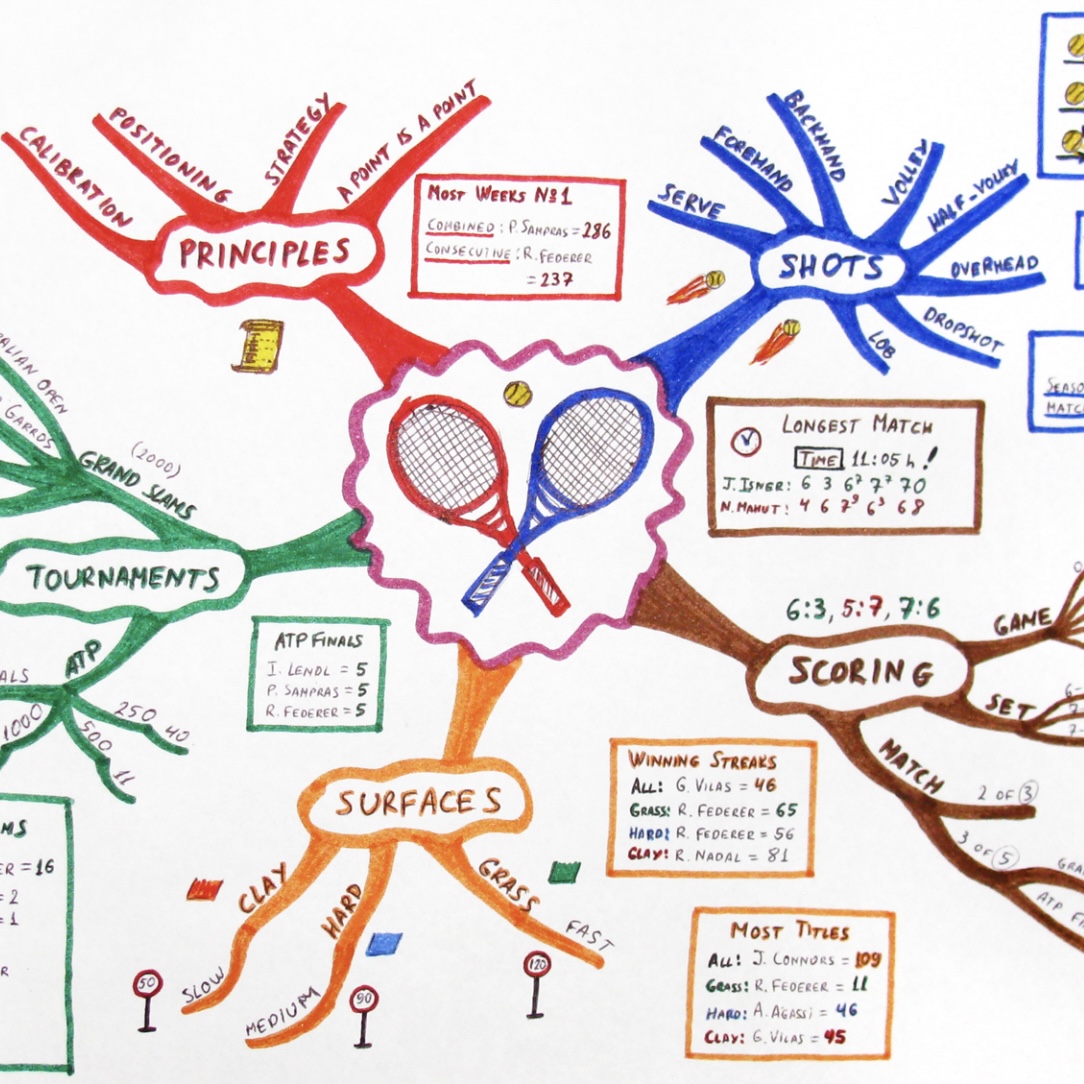 CALIBRATION
POSITIONING
STRATEGY
A POINT IS A POINT
PRINCIPLES
MOST WEEKS Nº1
COMBINED: P. SAMPRAS = 286
CONSECUTIVE: R. FEDERER
= 237
SERVE
FOREHAND
BACKHAND
VOLLEY
HALF-VOLLEY
OVERHEAD
DROPSHOT
LOB
SHOTS
SEASO
MATC
LONGEST MATCH
TIME 11:05 h!
J. ISNER: 6 3 6⁷ 7⁷ 70
N. MAHUT: 4 6 7⁹ 6³ 68
ALIAN OPEN
GARROS
GRAND SLAMS
(2000)
TOURNAMENTS
ATP
ALS
1000
500
11
250
40
ATP FINALS
I. LENDL = 5
P. SAMPRAS = 5
R. FEDERER = 5
MS
ER = 16
= 2
= 1
R
6:3, 5:7, 7:6
SCORING
GAME
0
SET
6-
7-
7-
MATCH
2 OF 3
3 OF 5
GRA
ATP FI
SURFACES
CLAY
SLOW
50
HARD
MEDIUM
90
GRASS
FAST
120
WINNING STREAKS
ALL: G. VILAS = 46
GRASS: R. FEDERER = 65
HARD: R. FEDERER = 56
CLAY: R. NADAL = 81
MOST TITLES
ALL: J. CONNORS = 109
GRASS: R. FEDERER = 11
HARD: A. AGASSI = 46
CLAY: G. VILAS = 45